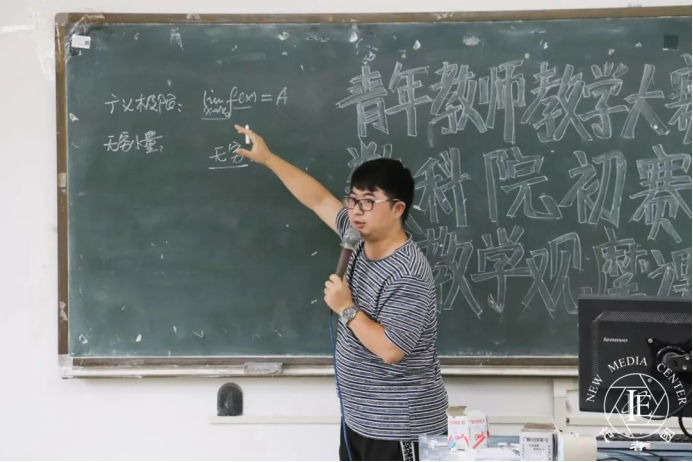 广义极限: lim f(x) = A
x→x₀
无穷小量:
无穷
青年教师教学大赛
数科院初赛
教学观摩课
lenovo
NEW MEDIA CENTER